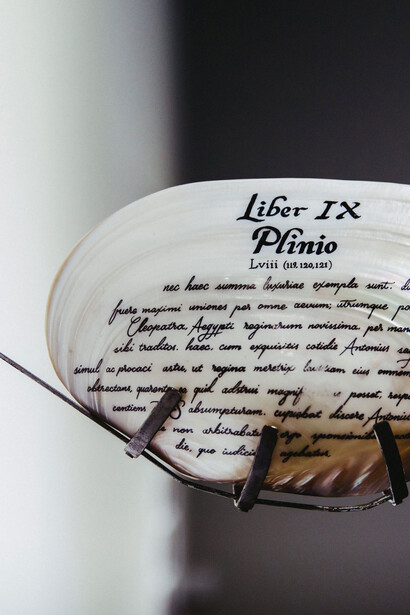 Liber IX
Plinio
Lviii (119,120,121)
nec haec summa luxuriae exempla sunt.
fuere maximi uniones per omne aevum; utrumque
Cleopatra, Aegypti reginarum novissima, per
sibi traditos. haec, cum exquisitis cotidie Antonius
simul ac procaci astu, ut regina meretrix eius
obtrectans, quid adstrui posset,
centiens absumpturam. cupiebat discere Antonius
non arbitrabatur
die, quo